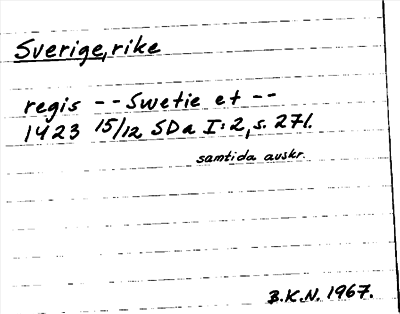 Sverige, rike
regis -- Swetie et --
1423 15/12 SDa I:2, s. 271.
samtida avskr.
B.K.N. 1967.